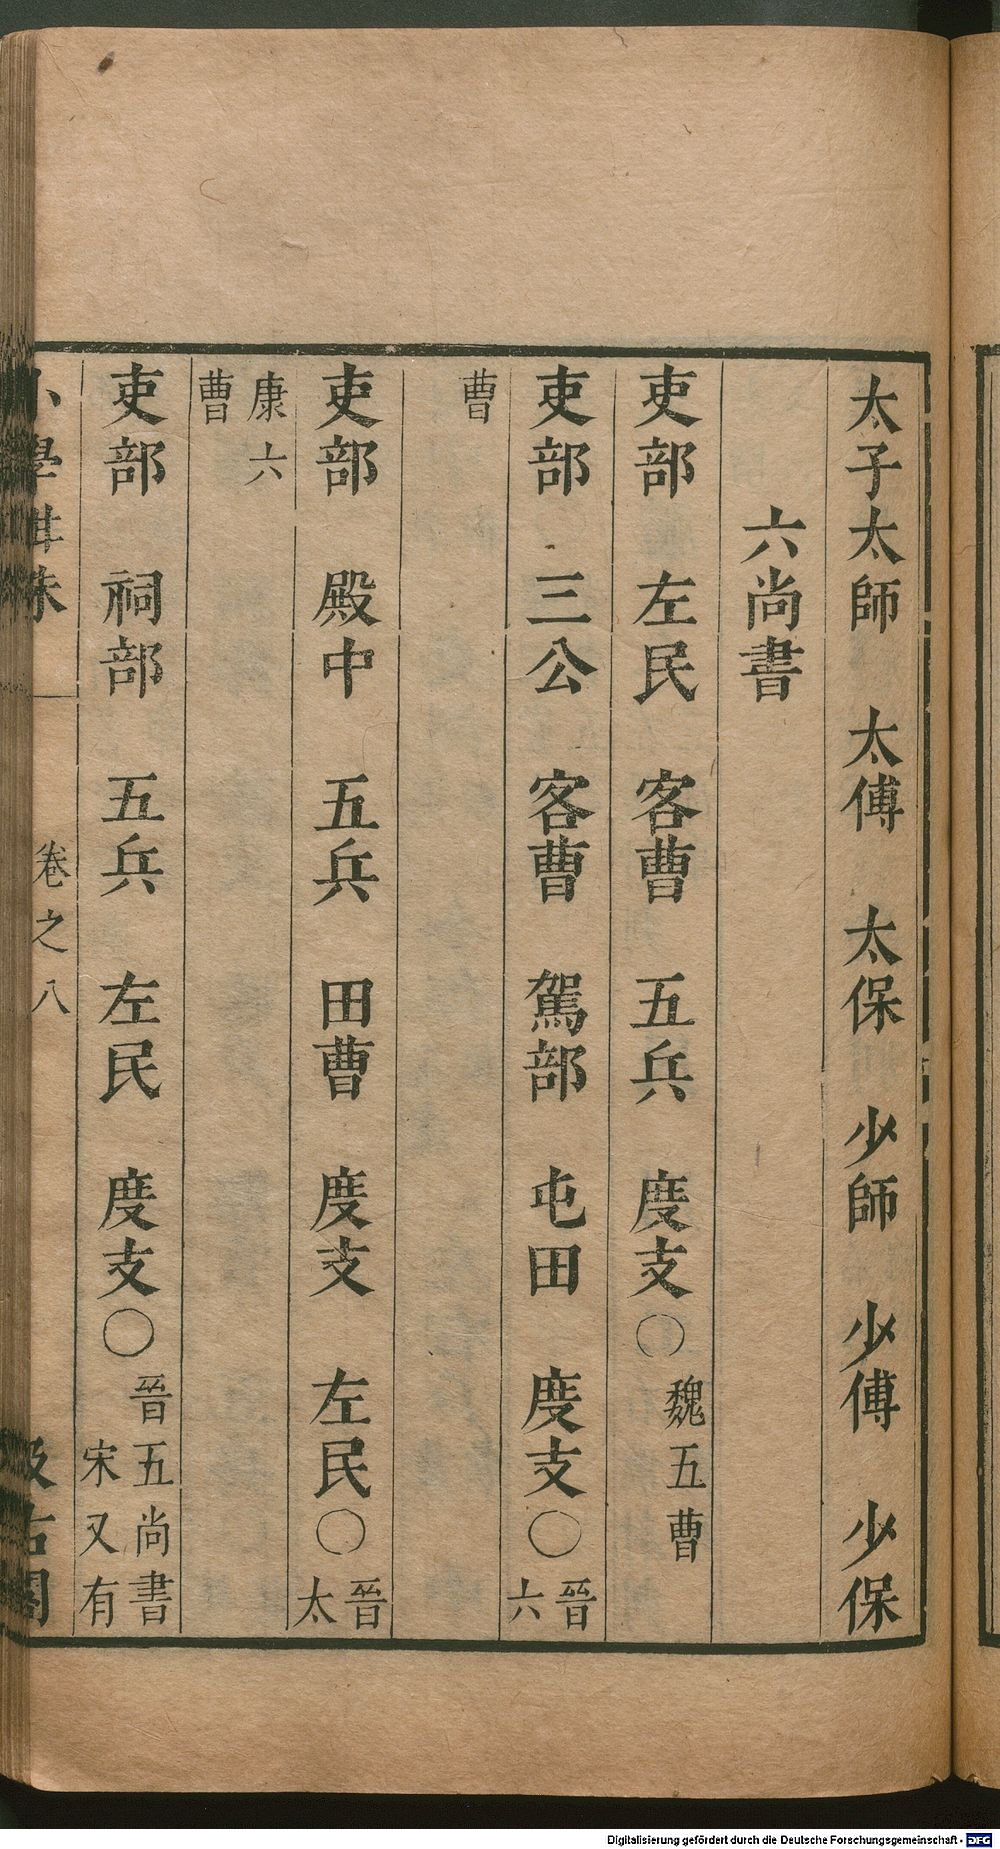 太子太師　太傅　太保　少師　少傅　少保
六尚書
吏部　左民　客曹　五兵　度支〇魏五曹
吏部　三公　客曹　駕部　屯田　度支〇晉六
曹
吏部　殿中　五兵　田曹　度支　左民〇晉太
康六曹
吏部　祠部　五兵　左民　度支〇晉五尚書宋又有
小學紺珠　卷之八　汲古閣
Digitalisierung gefördert durch die Deutsche Forschungsgemeinschaft - DFG